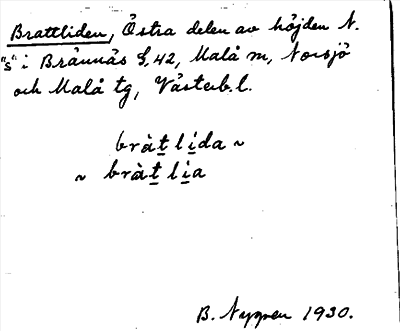 Brattliden, Östra delen av höjden N.
"s" i Brännäs §, 42, Malå m, Norsjö
och Malå tg, Västerb. l.
bràt̲li̲da ~
~ bràt̲li̲a
B. Nygren 1930.